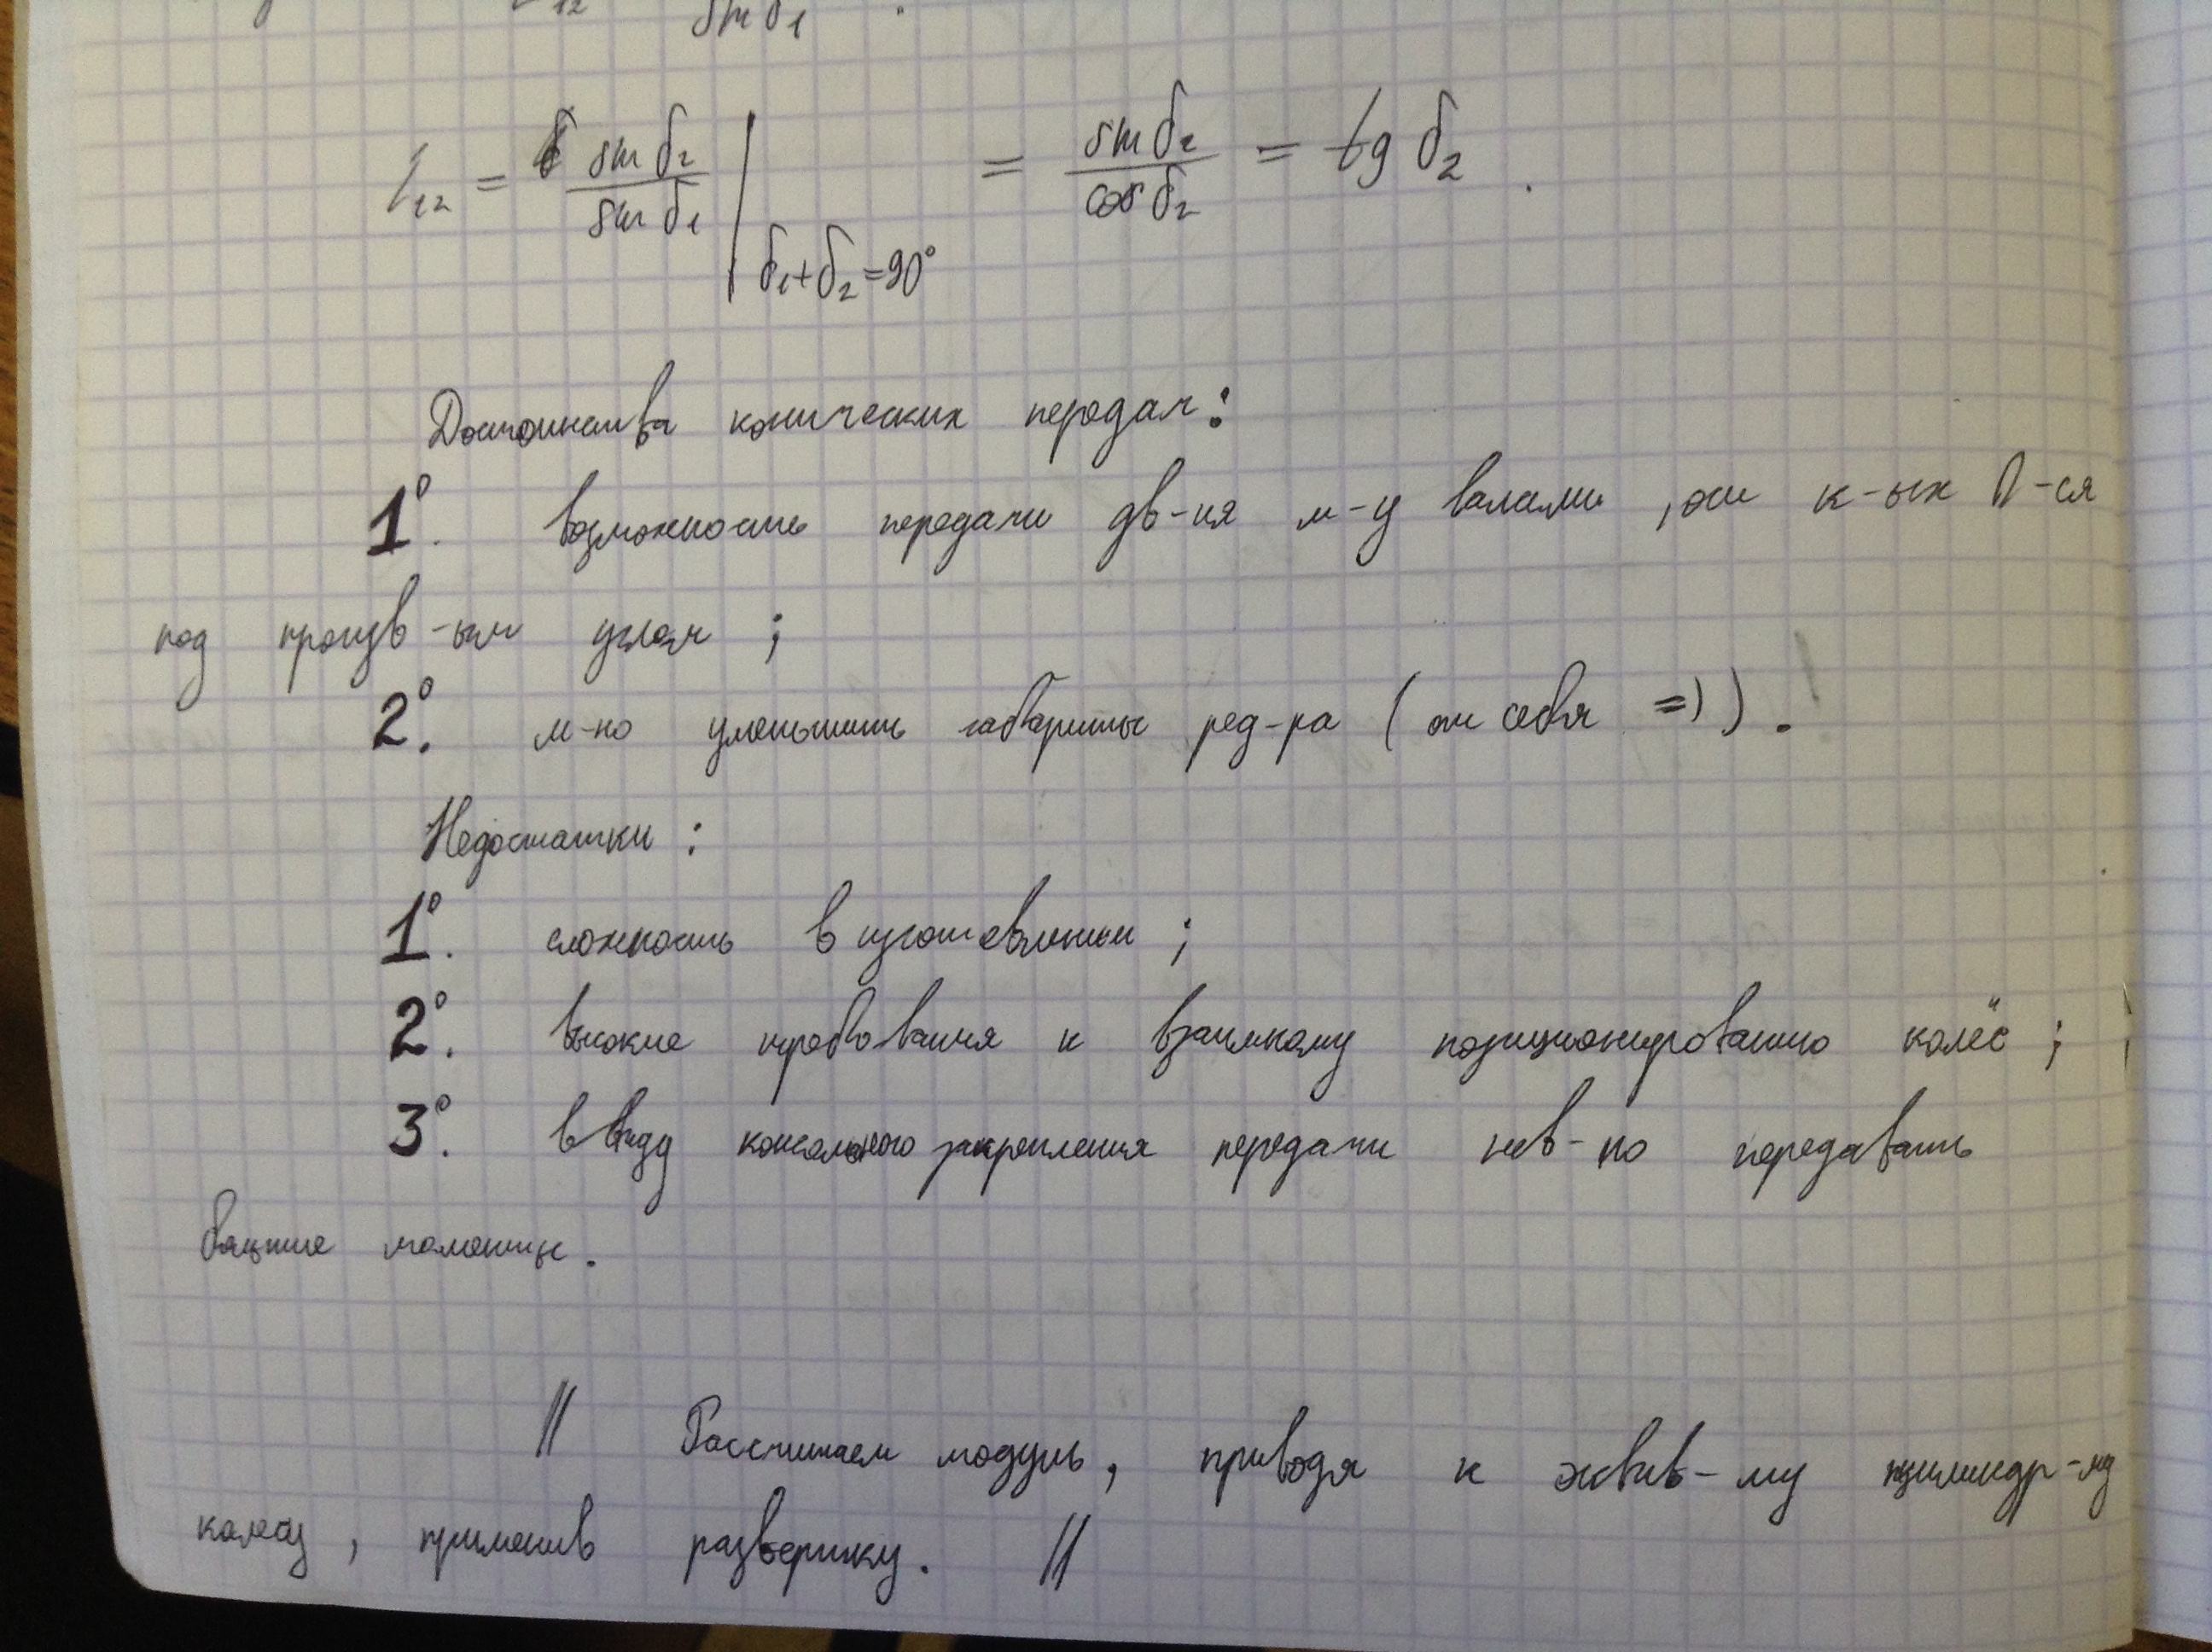 i₁₂ = sin δ₂ / sin δ₁ |δ₁+δ₂=90° = sin δ₂ / cos δ₂ = tg δ₂.
Достоинства конических передач:
1°. возможность передачи дв-ия м-у валами, оси к-ых ∩-ся
под произв-ым углом;
2°. м-но уменьшить габариты ред-ра (от себя =)).
Недостатки:
1°. сложность в изготовлении;
2°. высокие требования к взаимному позиционированию колёс;
3°. ввиду консольного закрепления передачи нев-но передавать
большие моменты.
// Рассчитаем модуль, приводя к эквив-му цилиндр-му
колесу, применив развертку. //